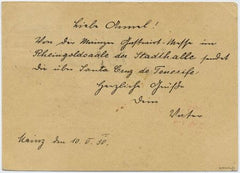 Liebe Annel!
Von der Mainzer Gastwirts-Messe im
Rheingoldsaale der Stadthalle sendet
dir über Santa Cruz de Tenerife
Herzliche Grüße
Dein
Vater
Mainz den 10. V. 30.